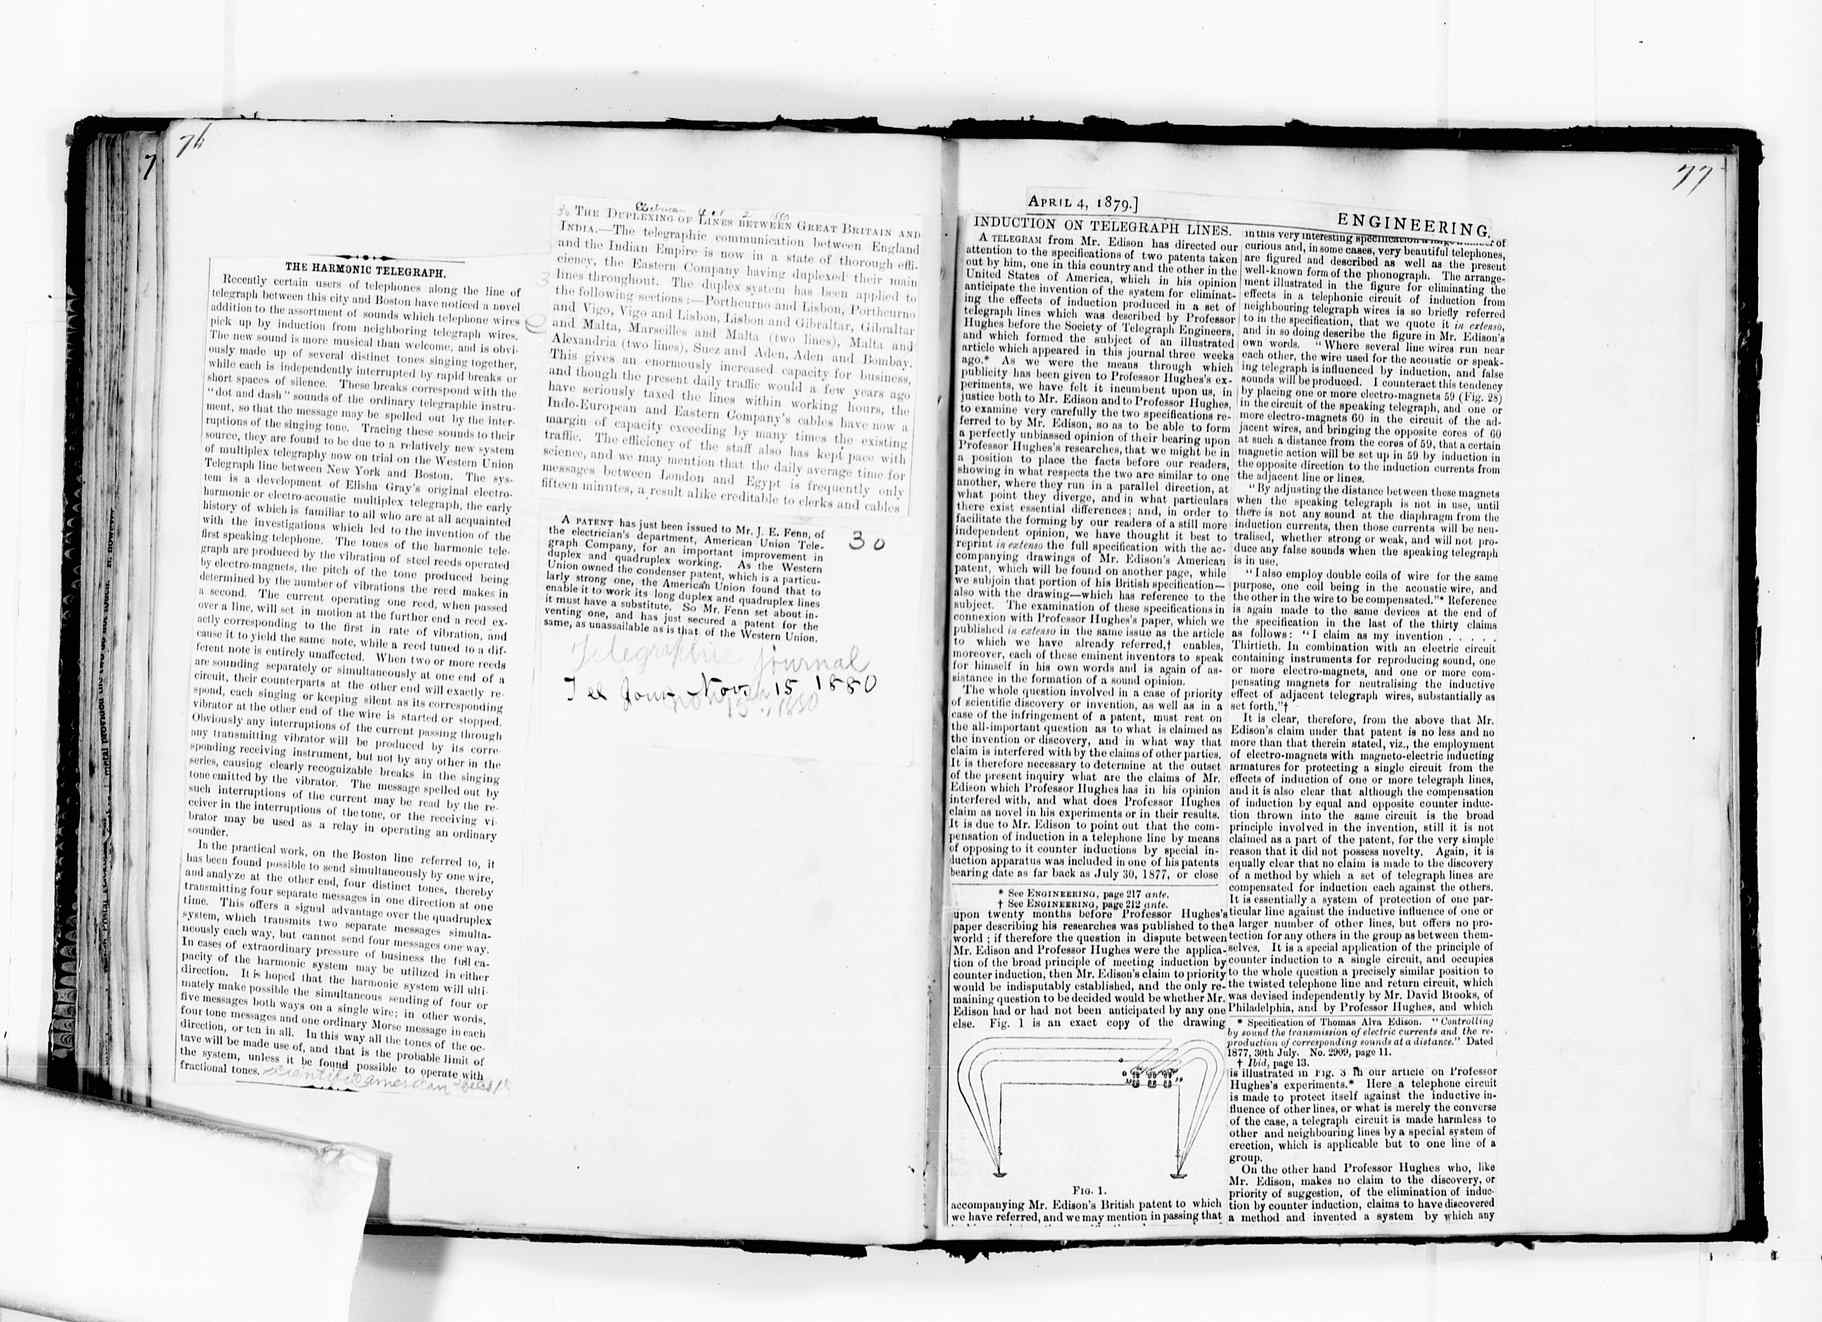 76
THE HARMONIC TELEGRAPH.
Recently certain users of telephones along the line of
telegraph between this city and Boston have noticed a novel
addition to the assortment of sounds which telephone wires
pick up by induction from neighboring telegraph wires.
The new sound is more musical than welcome, and is obvi-
ously made up of several distinct tones singing together,
while each is independently interrupted by rapid breaks or
short spaces of silence. These breaks correspond with the
"dot and dash" sounds of the ordinary telegraphic instru-
ment, so that the message may be spelled out by the inter-
ruptions of the singing tone. Tracing these sounds to their
source, they are found to be due to a relatively new system
of multiplex telegraphy now on trial on the Western Union
Telegraph line between New York and Boston. The sys-
tem is a development of Elisha Gray's original electro-
harmonic or electro-acoustic multiplex telegraph, the early
history of which is familiar to all who are at all acquainted
with the investigations which led to the invention of the
first speaking telephone. The tones of the harmonic tele-
graph are produced by the vibration of steel reeds operated
by electro-magnets, the pitch of the tone produced being
determined by the number of vibrations the reed makes in
a second. The current operating one reed, when passed
over a line, will set in motion at the further end a reed ex-
actly corresponding to the first in rate of vibration, and
cause it to yield the same note, while a reed tuned to a dif-
ferent note is entirely unaffected. When two or more reeds
are sounding separately or simultaneously at one end of a
circuit, their counterparts at the other end will exactly re-
spond, each singing or keeping silent as its corresponding
vibrator at the other end of the wire is started or stopped.
Obviously any interruptions of the current passing through
any transmitting vibrator will be produced by its corre-
sponding receiving instrument, but not by any other in the
series, causing clearly recognizable breaks in the singing
tone emitted by the vibrator. The message spelled out by
such interruptions of the current may be read by the re-
ceiver in the interruptions of the tone, or the receiving vi-
brator may be used as a relay in operating an ordinary
sounder.
In the practical work, on the Boston line referred to, it
has been found possible to send simultaneously by one wire,
and analyze at the other end, four distinct tones, thereby
transmitting four separate messages in one direction at one
time. This offers a signal advantage over the quadruplex
system, which transmits two separate messages simulta-
neously each way, but cannot send four messages one way.
In cases of extraordinary pressure of business the full ca-
pacity of the harmonic system may be utilized in either
direction. It is hoped that the harmonic system will ulti-
mately make possible the simultaneous sending of four or
five messages both ways on a single wire; in other words,
four tone messages and one ordinary Morse message in each
direction, or ten in all. In this way all the tones of the oc-
tave will be made use of, and that is the probable limit of
the system, unless it be found possible to operate with
fractional tones.
THE DUPLEXING OF LINES BETWEEN GREAT BRITAIN AND
INDIA.—The telegraphic communication between England
and the Indian Empire is now in a state of thorough effi-
ciency, the Eastern Company having duplexed their main
lines throughout. The duplex system has been applied to
the following sections:—Porthcurno and Lisbon, Porthcurno
and Vigo, Vigo and Lisbon, Lisbon and Gibraltar, Gibraltar
and Malta, Marseilles and Malta (two lines), Malta and
Alexandria (two lines), Suez and Aden, Aden and Bombay.
This gives an enormously increased capacity for business,
and though the present daily traffic would a few years ago
have seriously taxed the lines within working hours, the
Indo-European and Eastern Company's cables have now a
margin of capacity exceeding by many times the existing
traffic. The efficiency of the staff also has kept pace with
science, and we may mention that the daily average time for
messages between London and Egypt is frequently only
fifteen minutes, a result alike creditable to clerks and cables
A PATENT has just been issued to Mr. J. E. Fenn, of
the electrician's department, American Union Tele-
graph Company, for an important improvement in
duplex and quadruplex working. As the Western
Union owned the condenser patent, which is a particu-
larly strong one, the American Union found that to
enable it to work its long duplex and quadruplex lines
it must have a substitute. So Mr. Fenn set about in-
venting one, and has just secured a patent for the
same, as unassailable as is that of the Western Union.
30
Telegraphic Journal
Tel Jour Nov 15 1880
77
APRIL 4, 1879.]
ENGINEERING.
INDUCTION ON TELEGRAPH LINES.
A TELEGRAM from Mr. Edison has directed our
attention to the specifications of two patents taken
out by him, one in this country and the other in the
United States of America, which in his opinion
anticipate the invention of the system for eliminat-
ing the effects of induction produced in a set of
telegraph lines which was described by Professor
Hughes before the Society of Telegraph Engineers,
and which formed the subject of an illustrated
article which appeared in this journal three weeks
ago.* As we were the means through which
publicity has been given to Professor Hughes's ex-
periments, we have felt it incumbent upon us, in
justice both to Mr. Edison and to Professor Hughes,
to examine very carefully the two specifications re-
ferred to by Mr. Edison, so as to be able to form
a perfectly unbiassed opinion of their bearing upon
Professor Hughes's researches, that we might be in
a position to place the facts before our readers,
showing in what respects the two are similar to one
another, where they run in a parallel direction, at
what point they diverge, and in what particulars
there exist essential differences; and, in order to
facilitate the forming by our readers of a still more
independent opinion, we have thought it best to
reprint in extenso the full specification with the ac-
companying drawings of Mr. Edison's American
patent, which will be found on another page, while
we subjoin that portion of his British specification—
also with the drawing—which has reference to the
subject. The examination of these specifications in
connexion with Professor Hughes's paper, which we
published in extenso in the same issue as the article
to which we have already referred,† enables,
moreover, each of these eminent inventors to speak
for himself in his own words and is again of as-
sistance in the formation of a sound opinion.
The whole question involved in a case of priority
of scientific discovery or invention, as well as in a
case of the infringement of a patent, must rest on
the all-important question as to what is claimed as
the invention or discovery, and in what way that
claim is interfered with by the claims of other parties.
It is therefore necessary to determine at the outset
of the present inquiry what are the claims of Mr.
Edison which Professor Hughes has in his opinion
interfered with, and what does Professor Hughes
claim as novel in his experiments or in their results.
It is due to Mr. Edison to point out that the com-
pensation of induction in a telephone line by means
of opposing to it counter inductions by special in-
duction apparatus was included in one of his patents
bearing date as far back as July 30, 1877, or close
* See ENGINEERING, page 217 ante.
† See ENGINEERING, page 212 ante.
upon twenty months before Professor Hughes's
paper describing his researches was published to the
world; if therefore the question in dispute between
Mr. Edison and Professor Hughes were the applica-
tion of the broad principle of meeting induction by
counter induction, then Mr. Edison's claim to priority
would be indisputably established, and the only re-
maining question to be decided would be whether Mr.
Edison had or had not been anticipated by any one
else. Fig. 1 is an exact copy of the drawing
FIG. 1.
accompanying Mr. Edison's British patent to which
we have referred, and we may mention in passing that
in this very interesting specification a large of
curious and, in some cases, very beautiful telephones,
are figured and described as well as the present
well-known form of the phonograph. The arrange-
ment illustrated in the figure for eliminating the
effects in a telephonic circuit of induction from
neighbouring telegraph wires is so briefly referred
to in the specification, that we quote it in extenso,
and in so doing describe the figure in Mr. Edison's
own words. "Where several line wires run near
each other, the wire used for the acoustic or speak-
ing telegraph is influenced by induction, and false
sounds will be produced. I counteract this tendency
by placing one or more electro-magnets 59 (Fig. 28)
in the circuit of the speaking telegraph, and one or
more electro-magnets 60 in the circuit of the ad-
jacent wires, and bringing the opposite cores of 60
at such a distance from the cores of 59, that a certain
magnetic action will be set up in 59 by induction in
the opposite direction to the induction currents from
the adjacent line or lines.
"By adjusting the distance between those magnets
when the speaking telegraph is not in use, until
there is not any sound at the diaphragm from the
induction currents, then those currents will be neu-
tralised, whether strong or weak, and will not pro-
duce any false sounds when the speaking telegraph
is in use.
"I also employ double coils of wire for the same
purpose, one coil being in the acoustic wire, and
the other in the wire to be compensated."* Reference
is again made to the same devices at the end of
the specification in the last of the thirty claims
as follows: "I claim as my invention . . . . .
Thirtieth. In combination with an electric circuit
containing instruments for reproducing sound, one
or more electro-magnets, and one or more com-
pensating magnets for neutralising the inductive
effect of adjacent telegraph wires, substantially as
set forth."†
It is clear, therefore, from the above that Mr.
Edison's claim under that patent is no less and no
more than that therein stated, viz., the employment
of electro-magnets with magneto-electric inducting
armatures for protecting a single circuit from the
effects of induction of one or more telegraph lines,
and it is also clear that although the compensation
of induction by equal and opposite counter induc-
tion thrown into the same circuit is the broad
principle involved in the invention, still it is not
claimed as a part of the patent, for the very simple
reason that it did not possess novelty. Again, it is
equally clear that no claim is made to the discovery
of a method by which a set of telegraph lines are
compensated for induction each against the others.
It is essentially a system of protection of one par-
ticular line against the inductive influence of one or
a larger number of other lines, but offers no pro-
tection for any others in the group as between them-
selves. It is a special application of the principle of
counter induction to a single circuit, and occupies
to the whole question a precisely similar position to
the twisted telephone line and return circuit, which
was devised independently by Mr. David Brooks, of
Philadelphia, and by Professor Hughes, and which
* Specification of Thomas Alva Edison. "Controlling
by sound the transmission of electric currents and the re-
production of corresponding sounds at a distance." Dated
1877, 30th July. No. 2909, page 11.
† Ibid, page 13.
is illustrated in Fig. 3 in our article on Professor
Hughes's experiments.* Here a telephone circuit
is made to protect itself against the inductive in-
fluence of other lines, or what is merely the converse
of the case, a telegraph circuit is made harmless to
other and neighbouring lines by a special system of
erection, which is applicable but to one line of a
group.
On the other hand Professor Hughes who, like
Mr. Edison, makes no claim to the discovery, or
priority of suggestion, of the elimination of induc-
tion by counter induction, claims to have discovered
a method and invented a system by which any